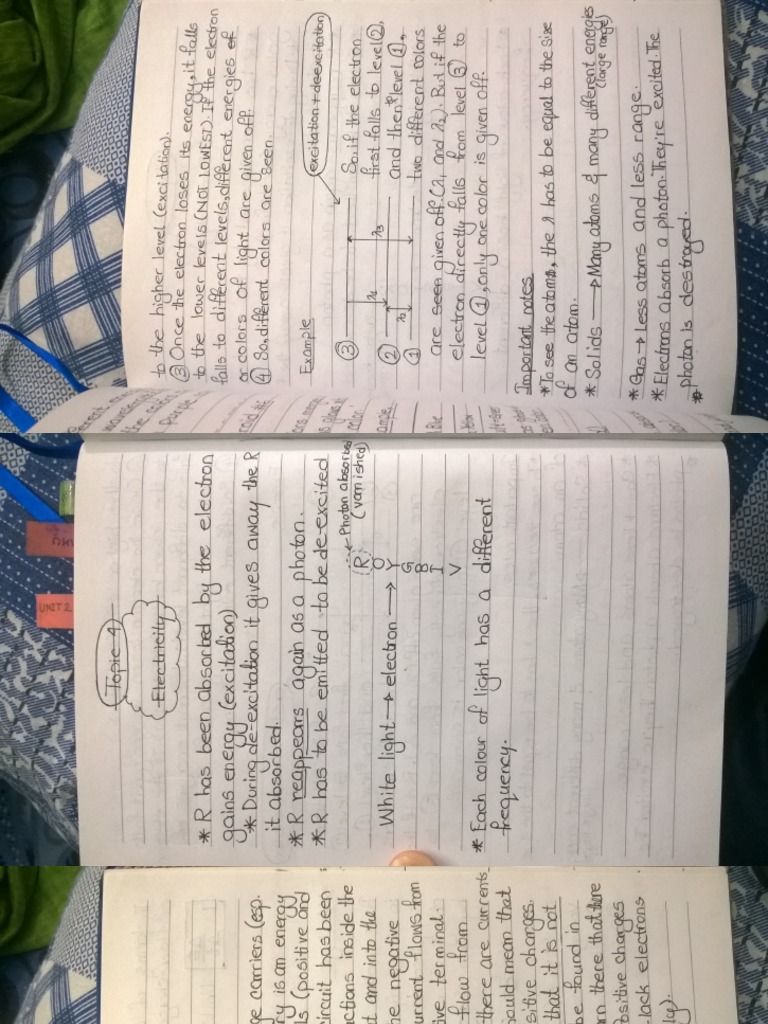 to the higher level (excitation).
③ Once the electron loses its energy, it falls
to the lower levels (NOT LOWEST). If the electron
falls to different levels, different energies of
or colors of light are given off.
④ So, different colors are seen.
Example
excitation + deexcitation
③
②
①
λ1
λ2
λ3
So, if the electron
first falls to level ②,
and then level ①,
two different colors
are seen given off. (λ1 and λ2). But if the
electron directly falls from level ③ to
level ①, only one color is given off.
Important notes
* To see the atoms, the λ has to be equal to the size
of an atom.
* Solids → Many atoms & many different energies
(large range)
* Gas → Less atoms and less range.
* Electrons absorb a photon. They're excited. The
* photon is destroyed.
UNIT 2
Topic 4
Electricity
* R has been absorbed by the electron
gains energy (excitation)
* During de-excitation it gives away the R
it absorbed.
* R reappears again as a photon.
* R has to be emitted to be de-excited
White light → electron →
R
O
Y
G
B
I
V
Photon absorbed
(vanished)
* Each colour of light has a different
frequency.
ge carriers (esp.
ry is an energy
ls (positive and
circuit has been
ctions inside the
t and into the
he negative
current flows from
ive terminal.
flow from
there are currents
ould mean that
sitive changes.
that it is not
be found in
an there that there
Positive charges
lack electrons